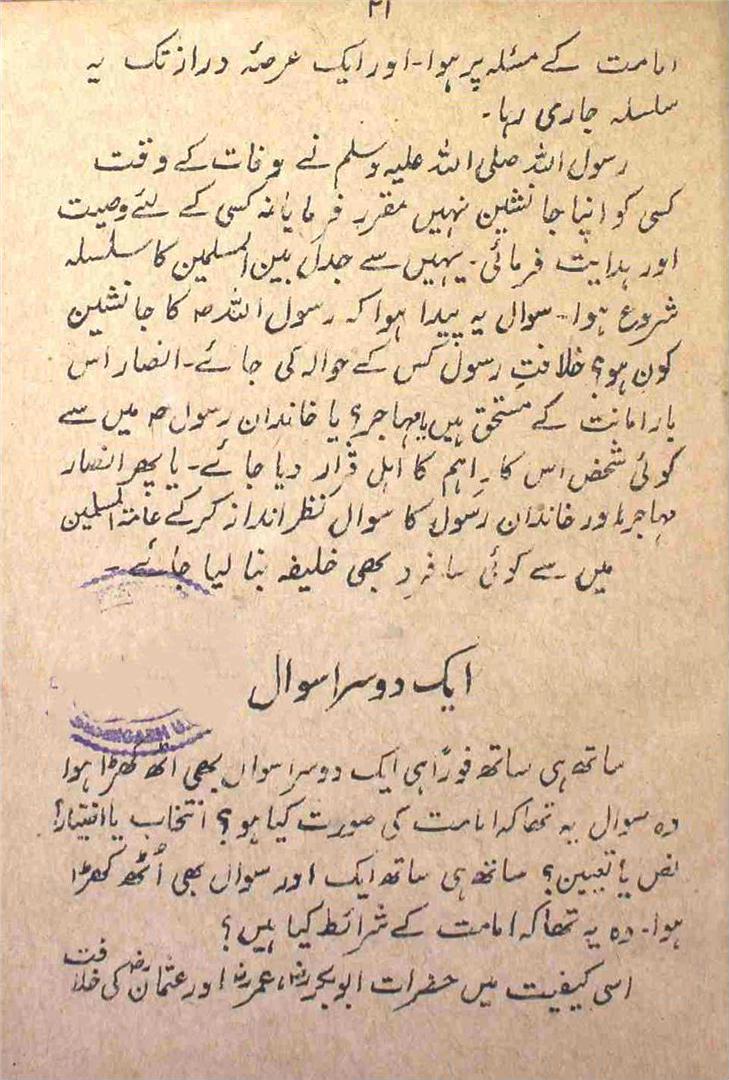 ۴۱
امامت کے مسئلہ پر ہوا۔ اور ایک عرصۂ دراز تک یہ
سلسلہ جاری رہا۔
رسول اللہ صلی اللہ علیہ وسلم نے وفات کے وقت
کسی کو اپنا جانشین نہیں مقرر فرمایا نہ کسی کے لئے وصیت
اور ہدایت فرمائی۔ یہیں سے جدل بین المسلمین کا سلسلہ
شروع ہوا۔ سوال یہ پیدا ہوا کہ رسول اللہ ؐ کا جانشین
کون ہو؟ خلافتِ رسول کس کے حوالہ کی جائے۔ انصار اس
بار امانت کے مستحق ہیں یا مہاجر؟ یا خاندان رسول ؐ میں سے
کوئی شخص اس کارِ اہم کا اہل قرار دیا جائے۔ یا پھر انصار
مہاجر اور خاندان رسول کا سوال نظر انداز کر کے عامۃ المسلمین
میں سے کوئی سا فرد بھی خلیفہ بنا لیا جائے۔
ایک دوسرا سوال
ساتھ ہی ساتھ فوراً ہی ایک دوسرا سوال بھی اٹھ کھڑا ہوا
وہ سوال یہ تھا کہ امامت کی صورت کیا ہو؟ انتخاب یا اختیار؟
نص یا تعیین؟ ساتھ ہی ساتھ ایک اور سوال بھی اُٹھ کھڑا
ہوا۔ وہ یہ تھا کہ امامت کے شرائط کیا ہیں؟
اسی کیفیت میں حضرات ابوبکرؓ، عمرؓ اور عثمانؓ کی خلافت